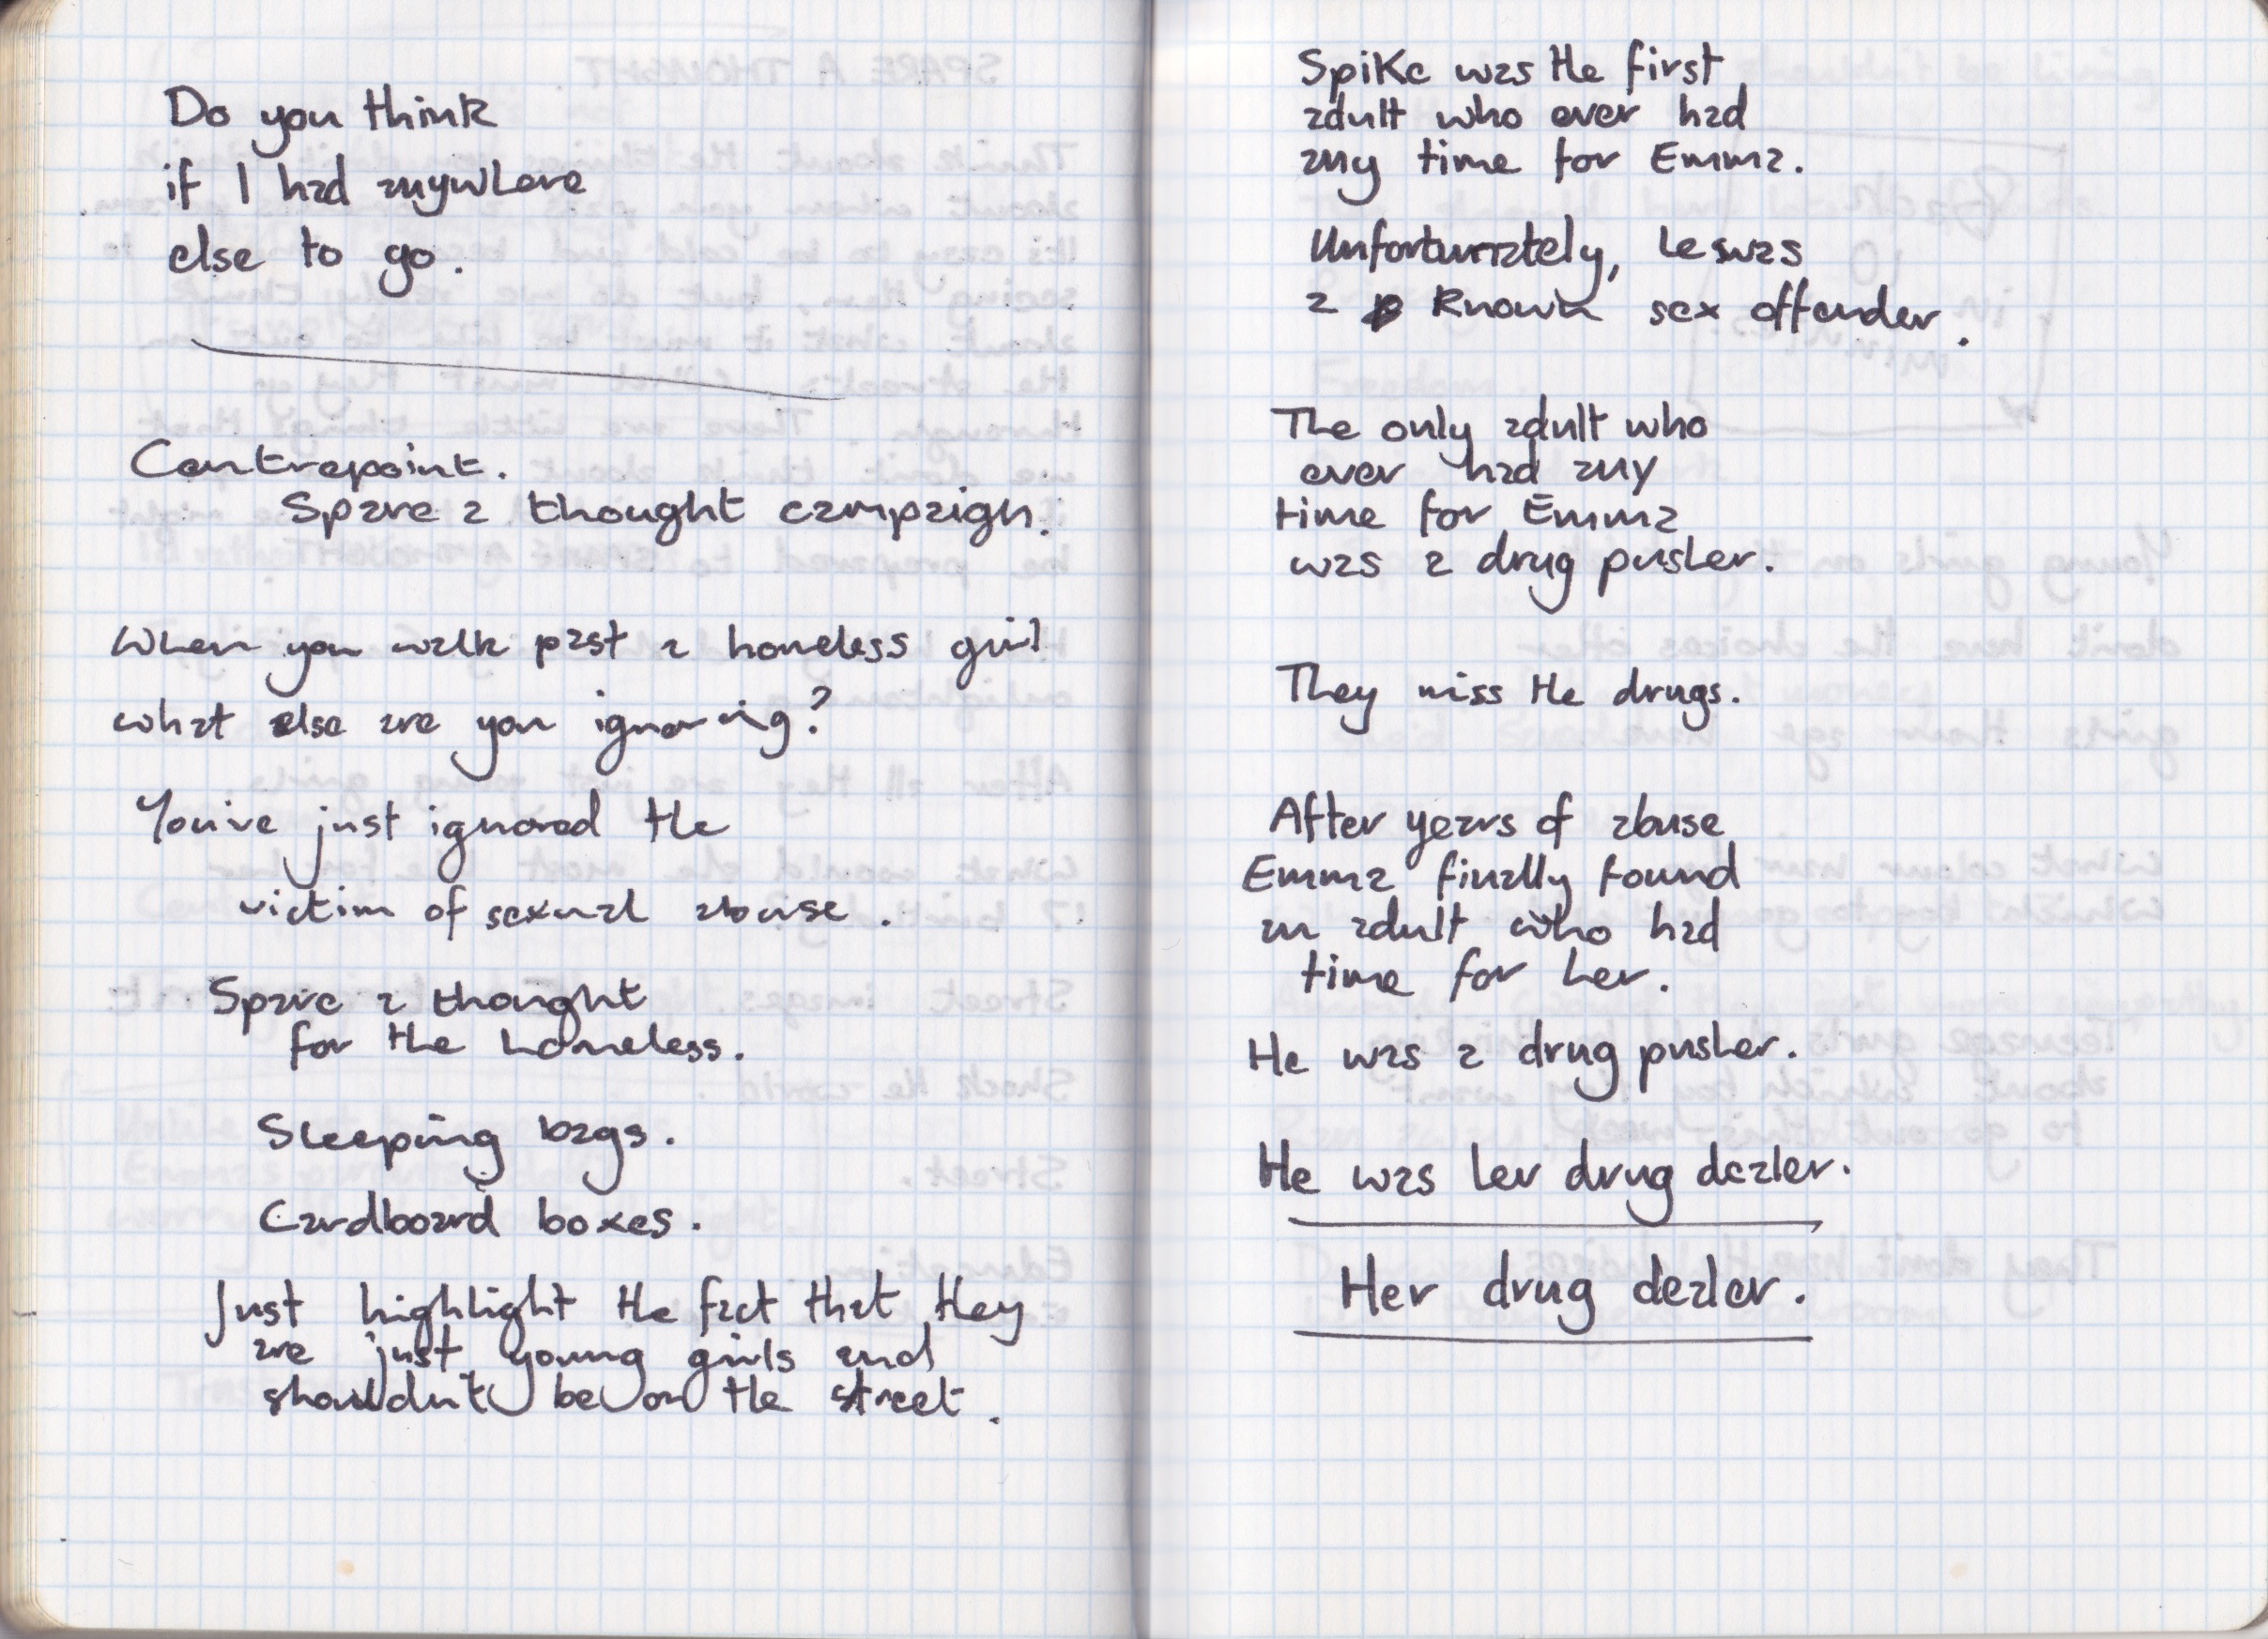 Do you think
if I had anywhere
else to go.
Centrepoint.
Spare a thought campaign.
When you walk past a homeless girl
what else are you ignoring?
You've just ignored the
victim of sexual abuse.
Spare a thought
for the homeless.
Sleeping bags.
Cardboard boxes.
Just highlight the fact that they
are just young girls and
shouldn't be on the street.
Spike was the first
adult who ever had
any time for Emma.
Unfortunately, he was
a known sex offender.
The only adult who
ever had any
time for Emma
was a drug pusher.
They miss the drugs.
After years of abuse
Emma finally found
an adult who had
time for her.
He was a drug pusher.
He was her drug dealer.
Her drug dealer.